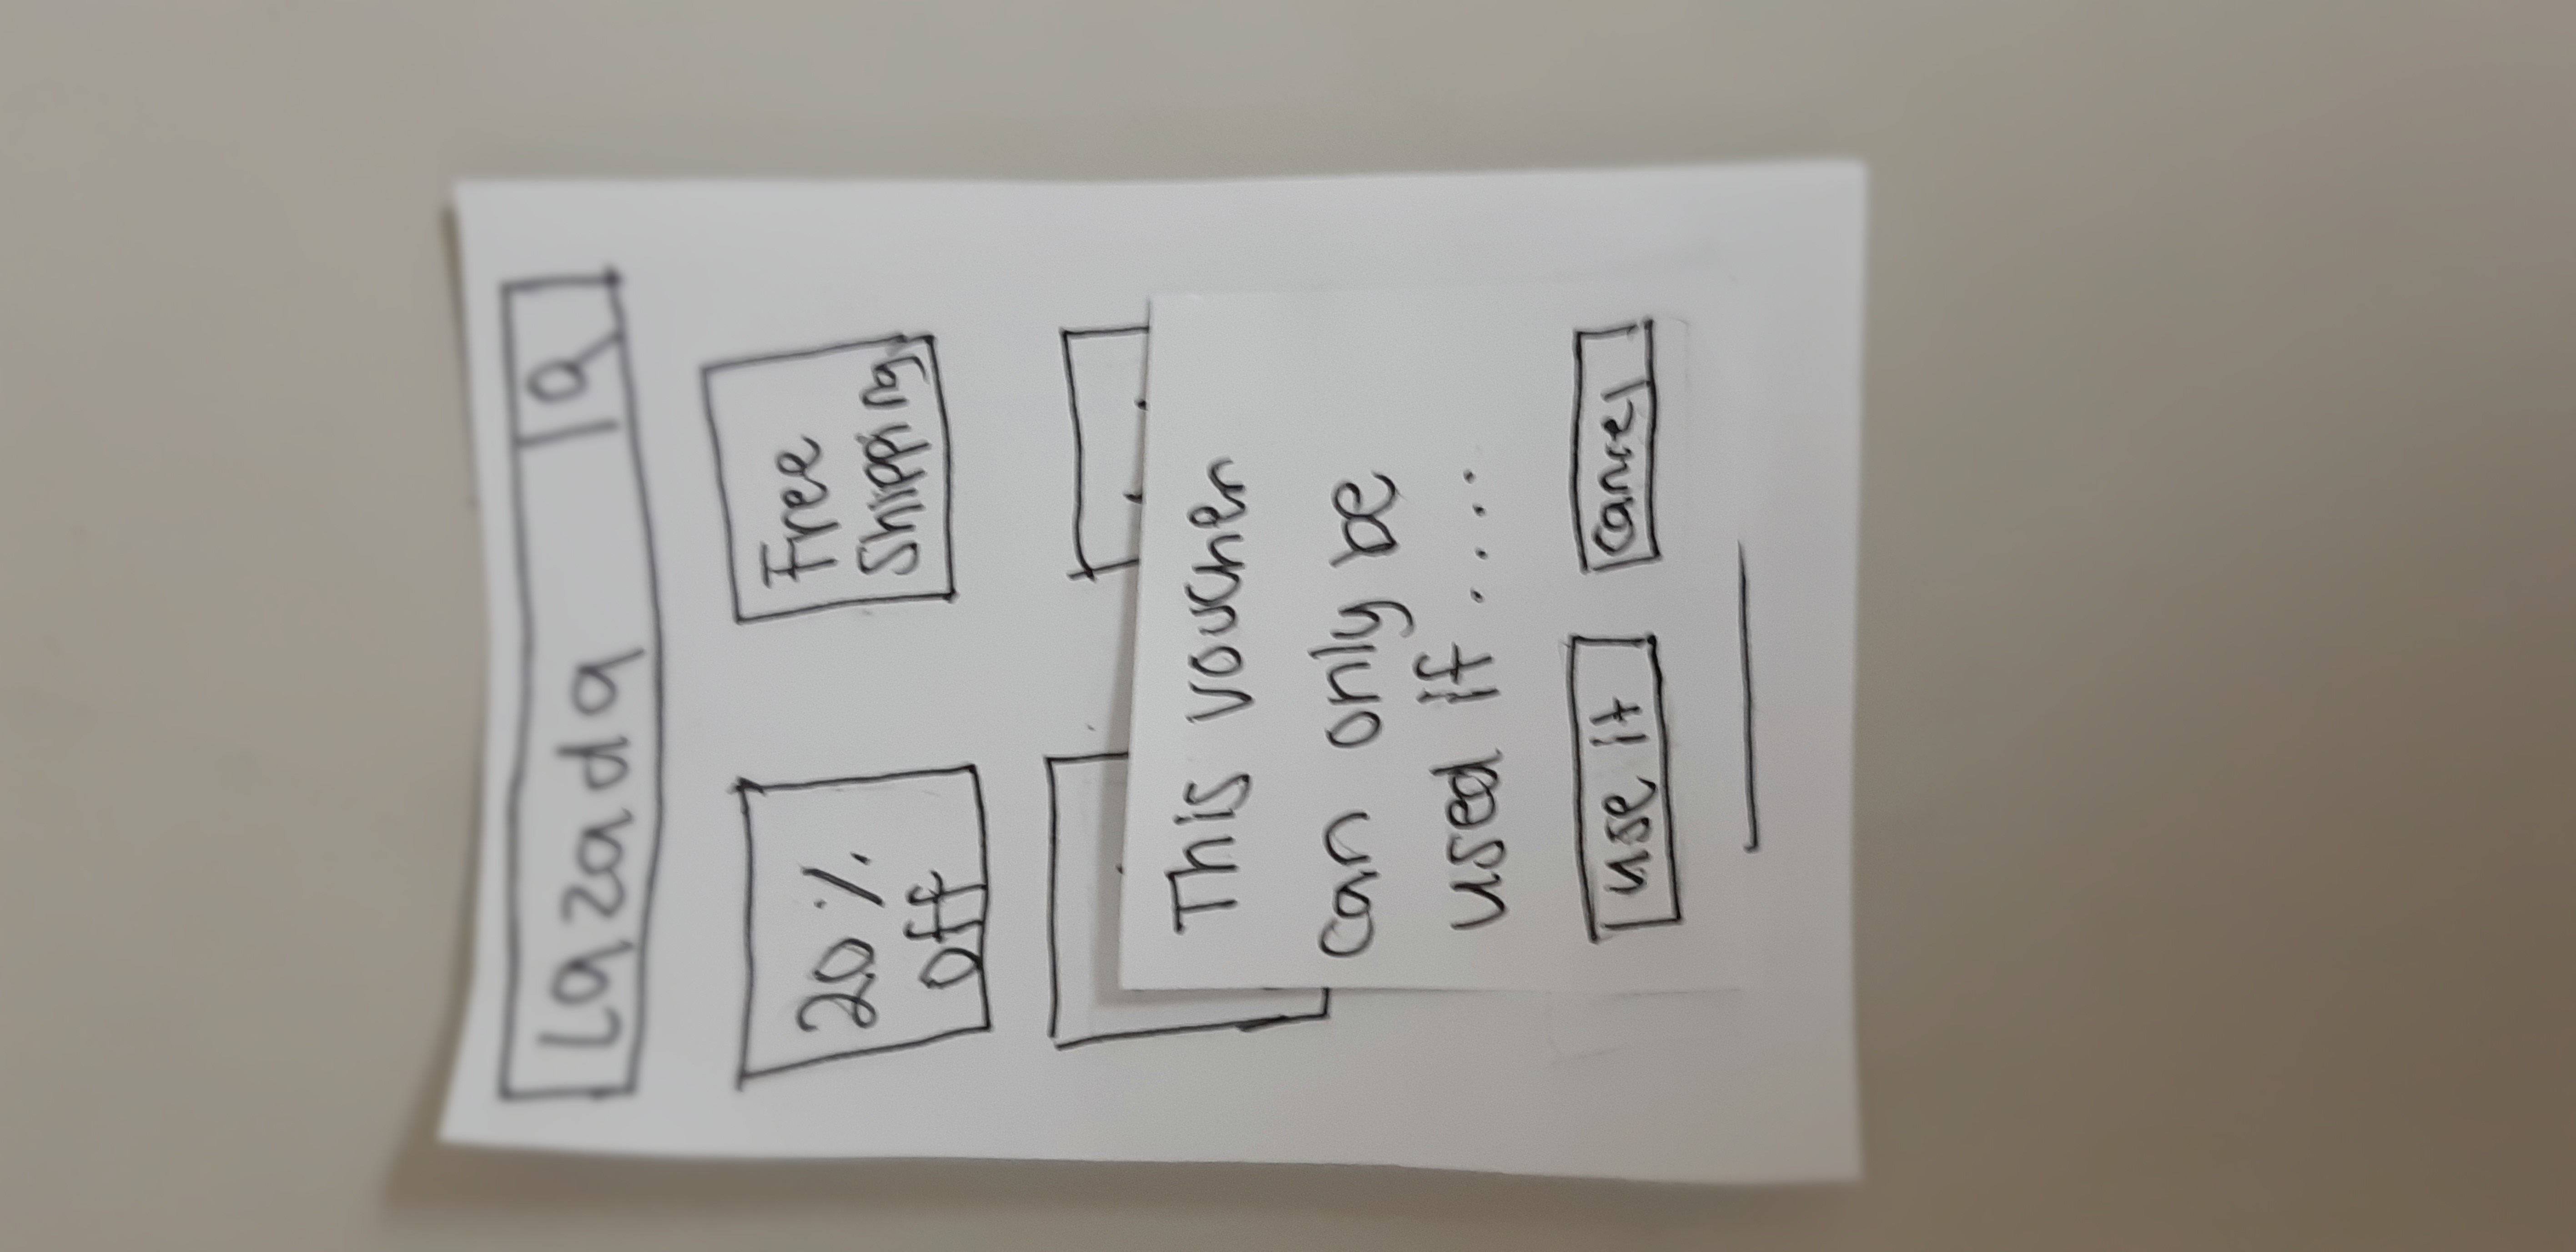 Lazada
20%
off
Free
Shipping
This voucher
can only be
used if ....
use it
cancel